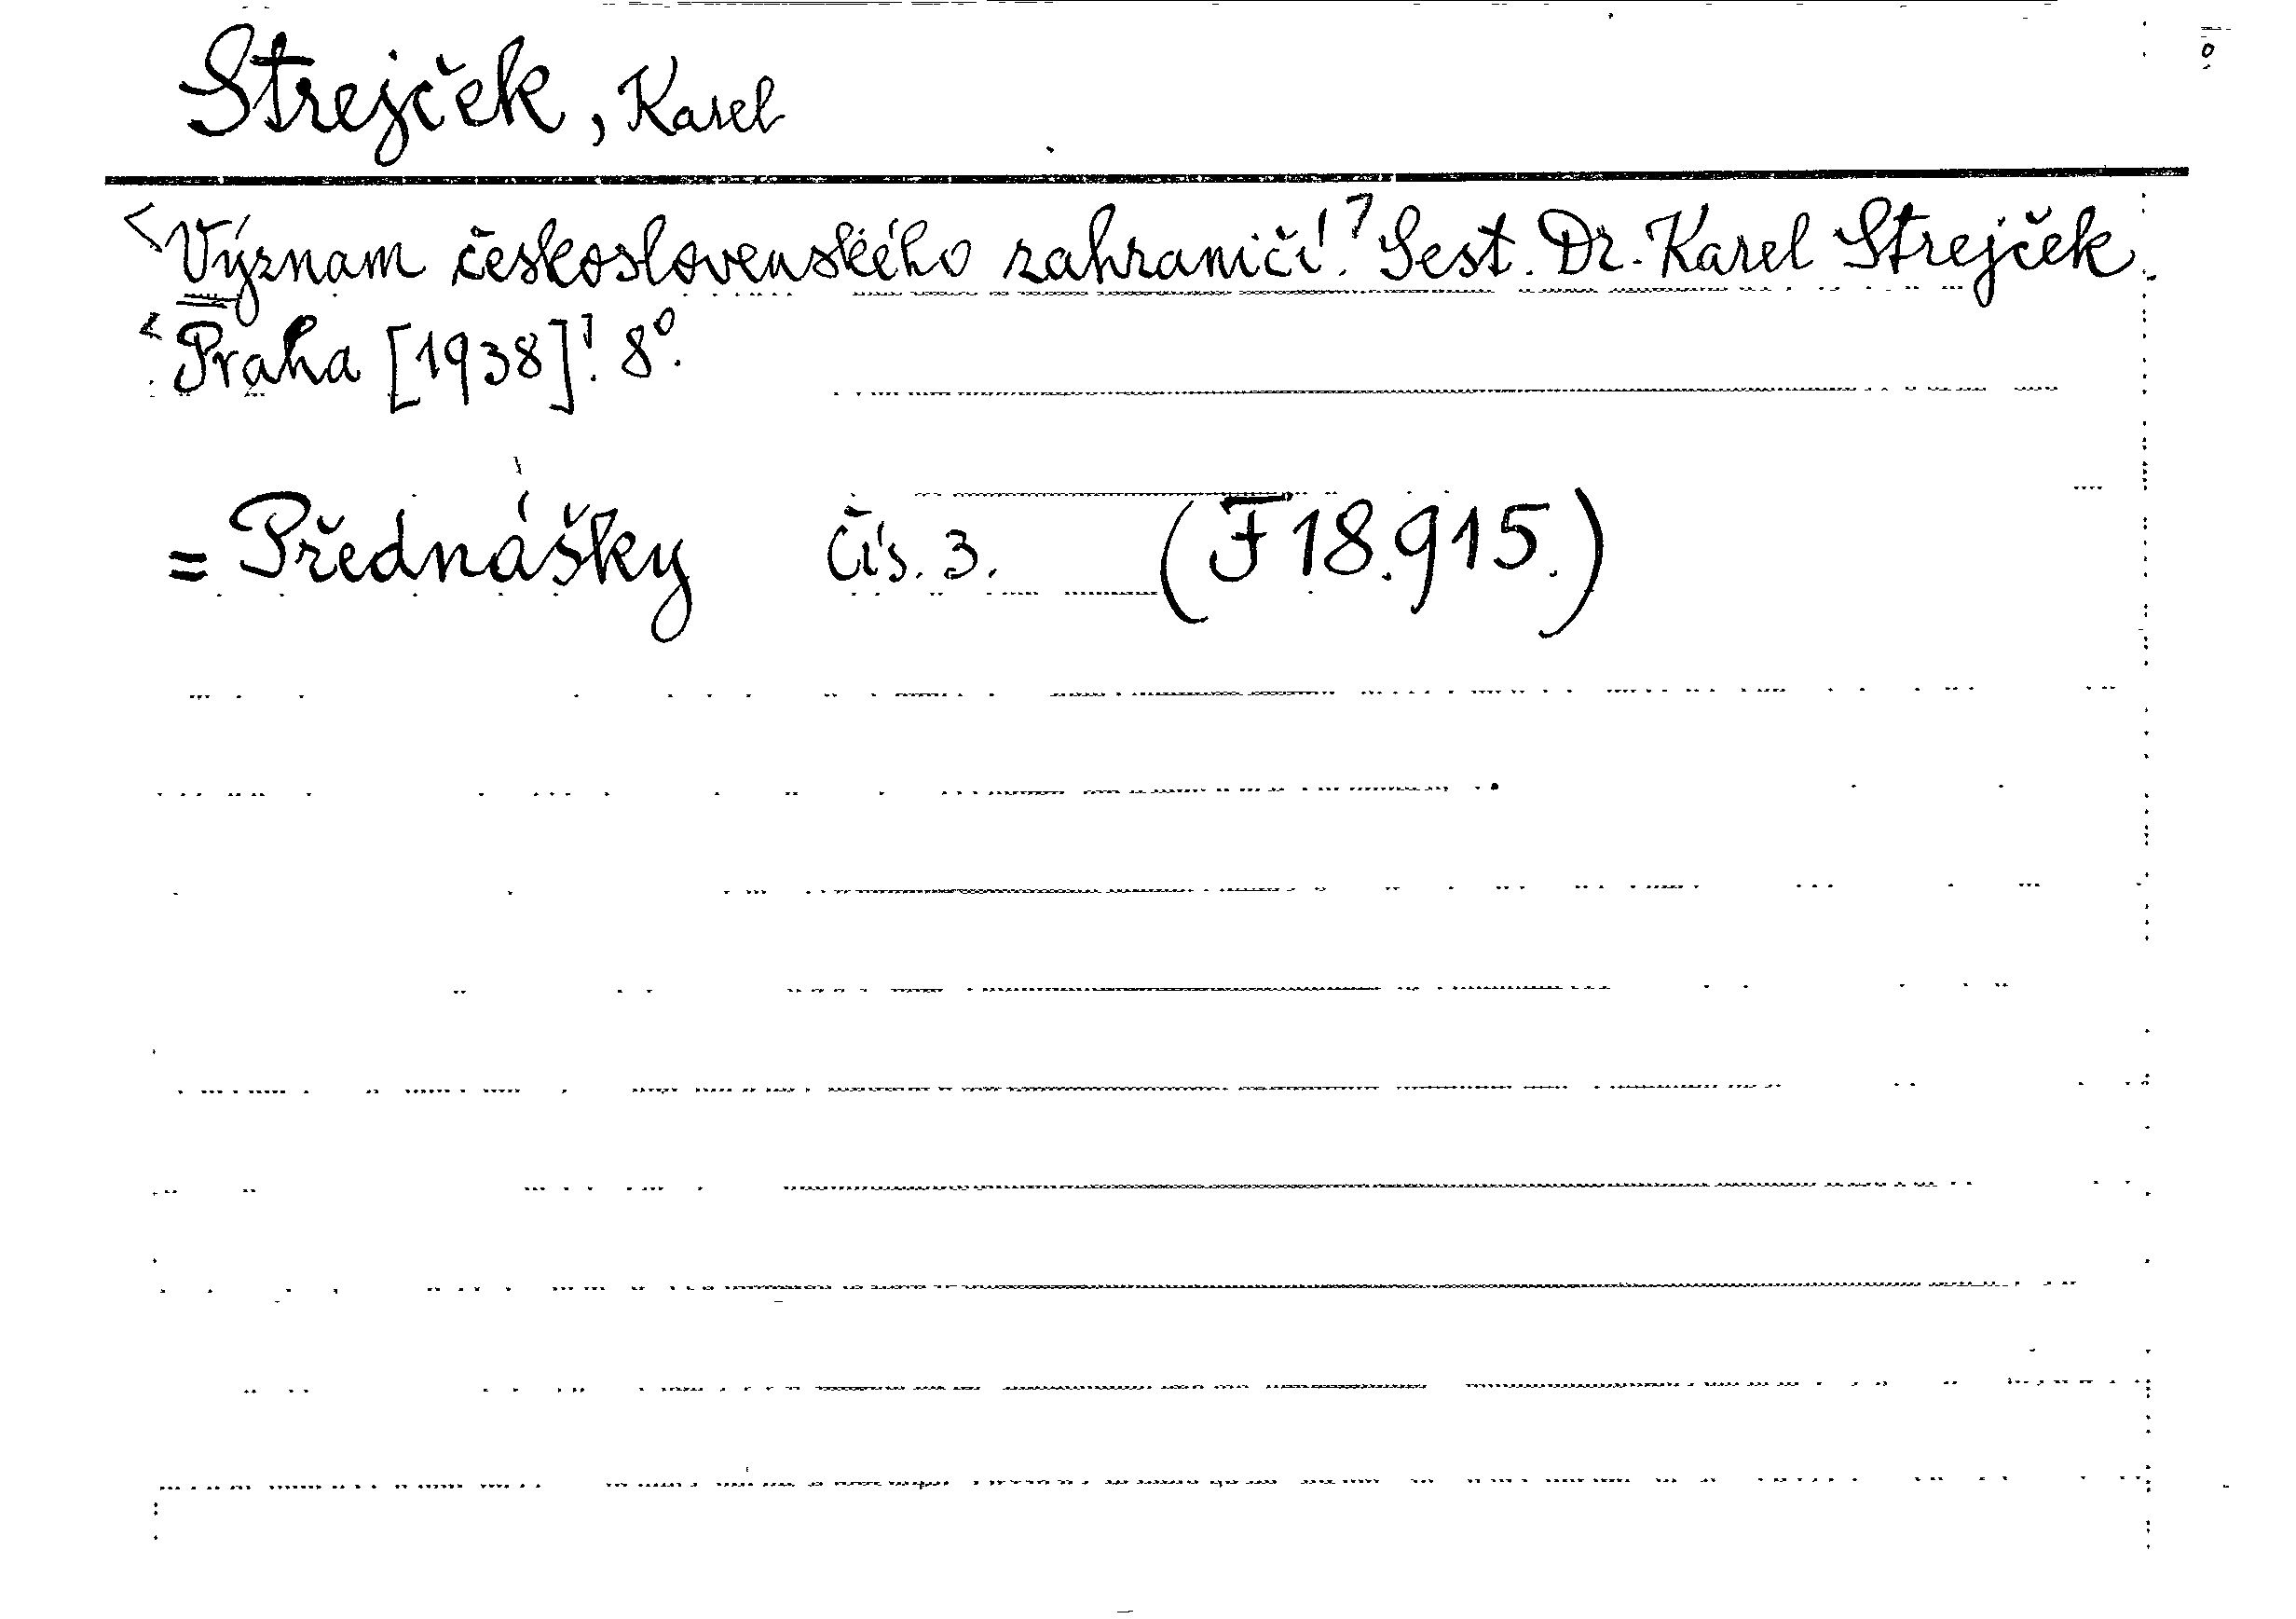 Strejček, Karel
<Význam československého zahraničí.> Sest. Dr. Karel Strejček.
<Praha [1938].> 8°.
= Přednášky Čís. 3. (F 18.915.)